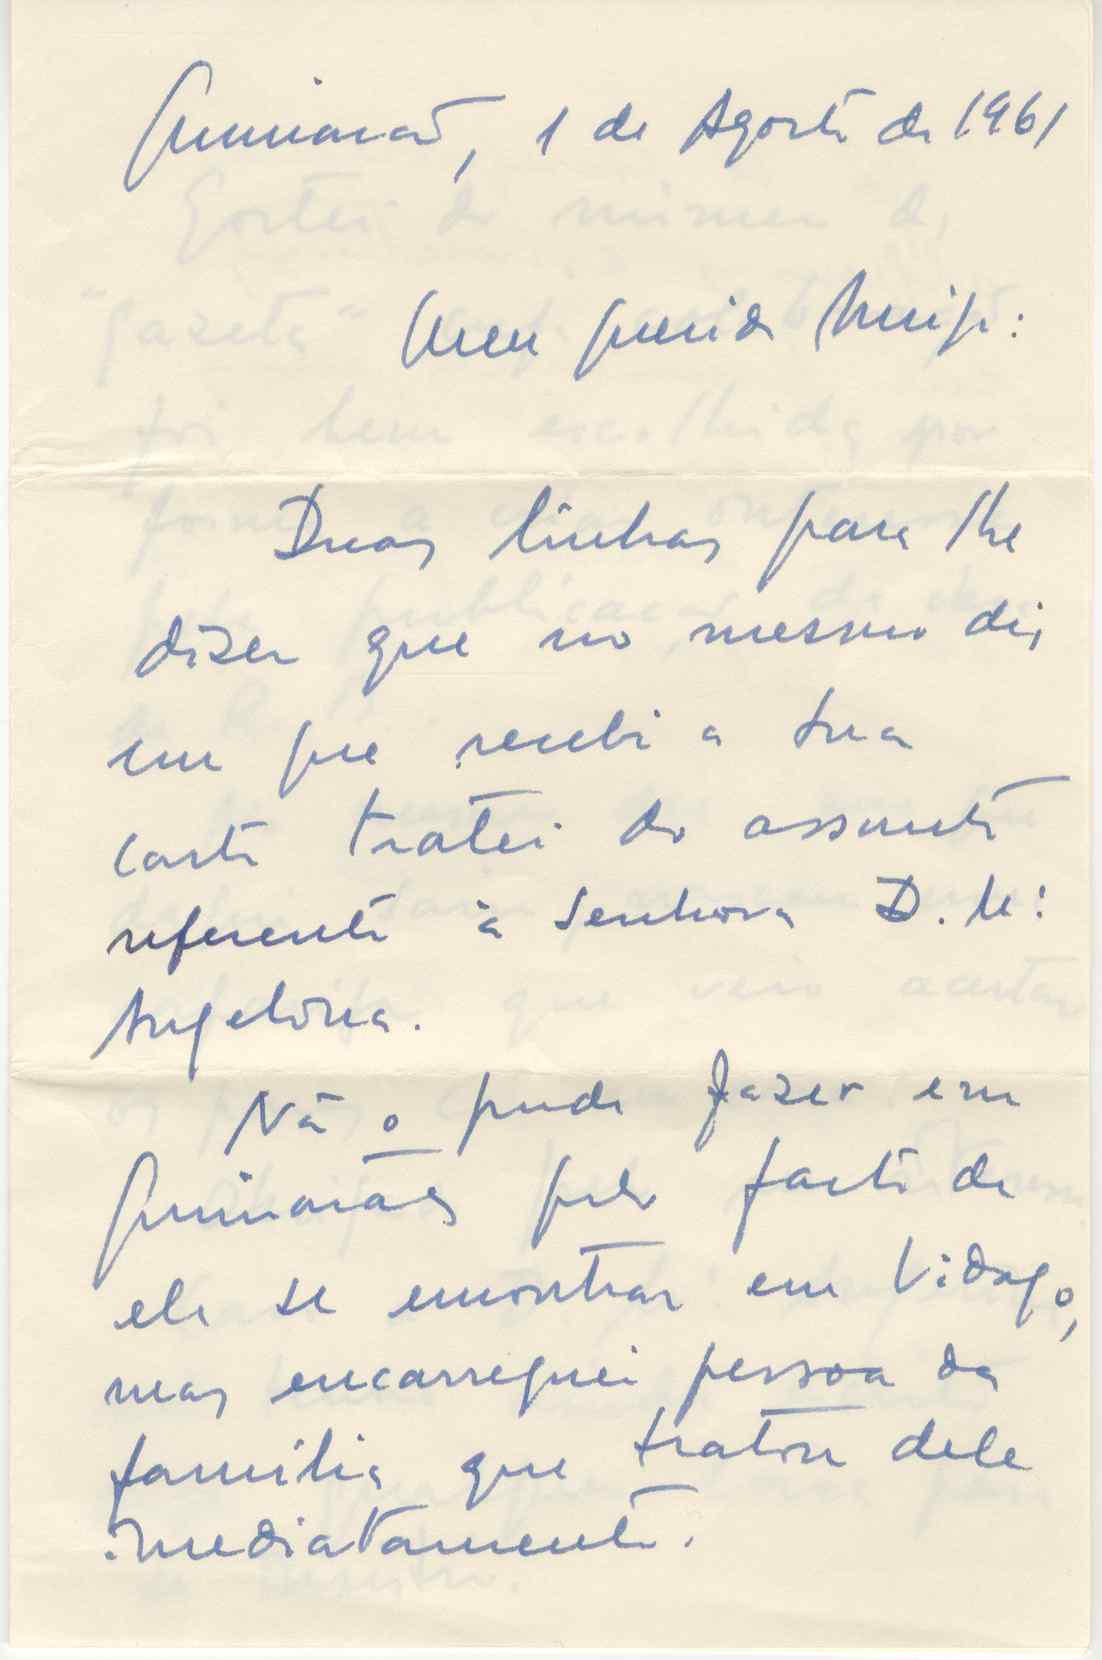 Guimarães, 1 de Agosto de 1961
Meu querido Amigo:
Duas linhas para lhe
dizer que no mesmo dia
em que recebi a sua
carta tratei do assunto
referente à Senhora D. M.ª
Angelina.
Não o pude fazer em
Guimarães pelo facto de
ele se encontrar em Vidago,
mas encarreguei pessoa da
família que tratou dele
imediatamente.